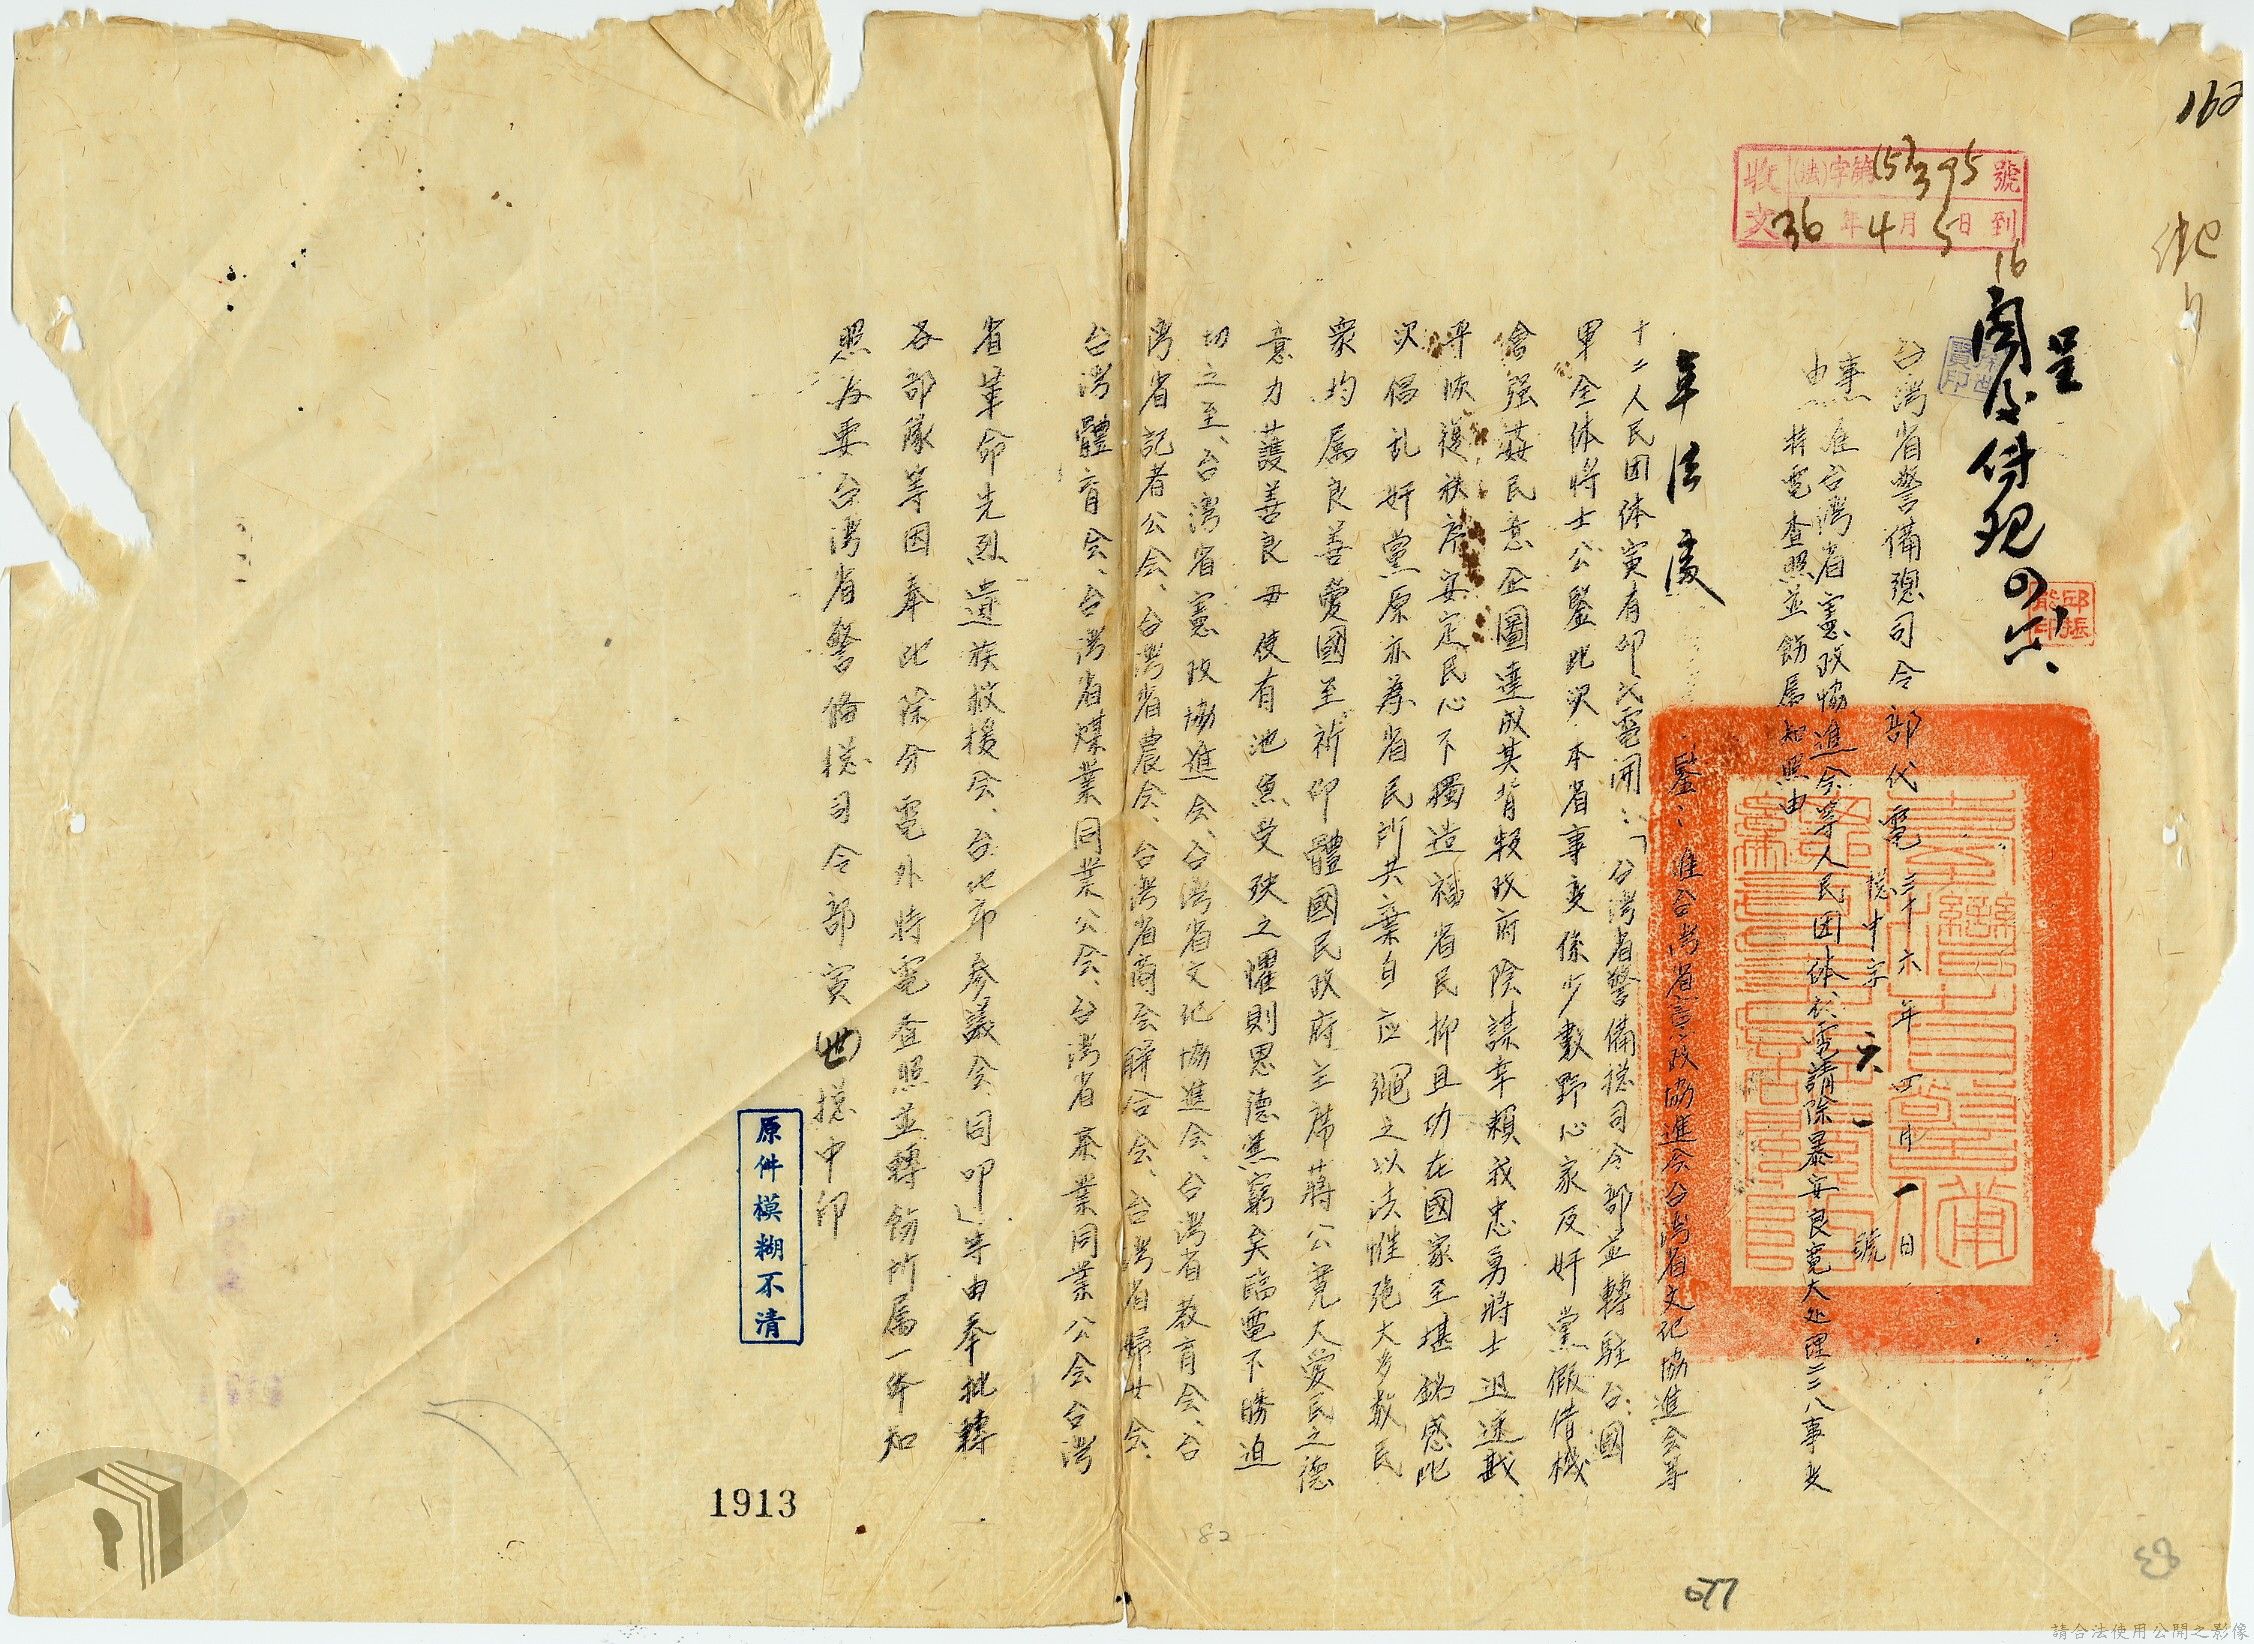 162
收文 (法)字第(5)395號
36年4月5日到
16
呈
閱後付現 四、六、
邱振龍印
台灣省警備總司令部代電 三十六年四月一日
總中字 六一 號
事由 准台灣省憲政協進会等人民团体代電請除暴安良寬大処理二二八事変
特電查照並飭屬知照由
軍法處
鑒：准台灣省憲政協進会台灣省文化協進会等
十二人民团体寅有印代電開：「台灣省警備總司令部並轉駐台國
軍全体将士公鑒此次本省事变係少數野心家及奸黨假借機
會强姦民意企圖達成其背叛政府陰謀幸賴我忠勇將士迅速戡
平恢復秩序安定民心不獨造福省民抑且功在國家至堪銘感此
次倡乱奸黨原亦為省民所共棄自应繩之以法惟絶大多数民
衆均屬良善愛國至祈仰體國民政府主席蔣公寬大愛民之德
意力護善良毋使有池魚受殃之懼則恩德無窮矣臨電不勝迫
切之至、台灣省憲政協進会、台灣省文化協進会、台灣省教育会、台
灣省記者公会、台灣省農会、台灣省商会聯合会、台灣省婦女会、
台灣體育会、台灣省煤業同業公会、台灣省茶業同業公会台灣
省革命先烈遺族救援会、台北市参議会同叩」等由奉批轉
各部隊等因奉此除分電外特電查照並轉飭所屬一体知
照為要台灣省警俻總司令部寅(世)總中印
原件模糊不清
1913
82
83
077
請合法使用公開之影像